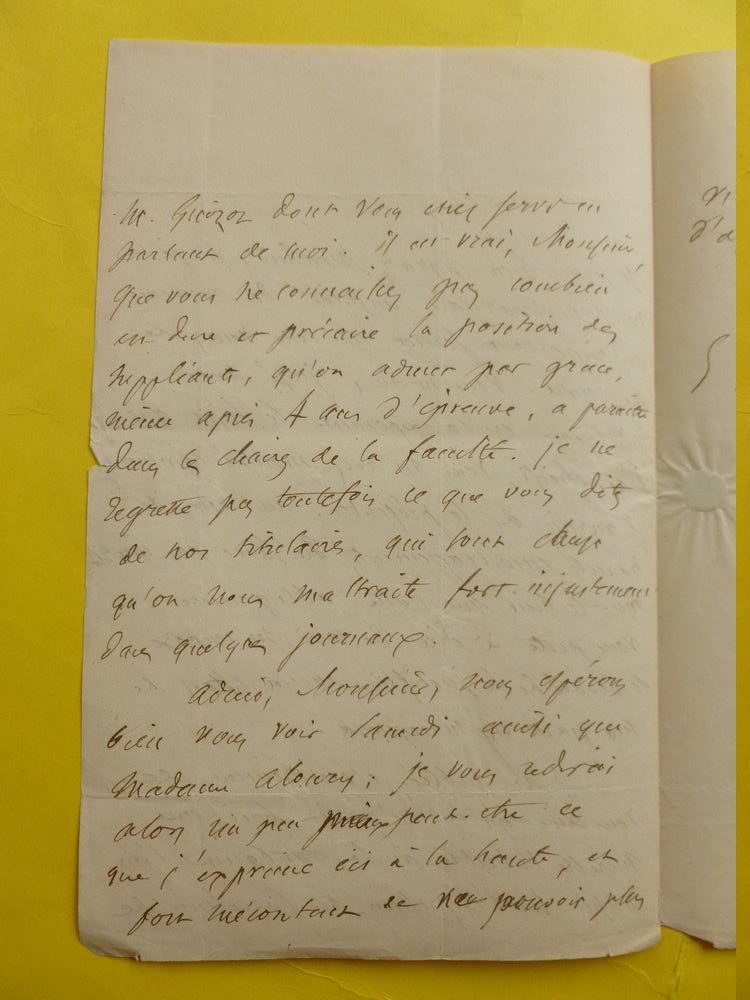 M. Guizot dont vous étiez servi en
parlant de moi. il est vrai, Monsieur,
que vous ne connaissez pas combien
est dure et précaire la position des
suppliants, qu'on admet par grace,
même après 4 ans d'épreuve, a paraitre
dans les chaires de la faculté. je ne
regrette pas toutefois ce que vous dites
de nos titulaires, qui sont cause
qu'on nous maltraite fort injustement
dans quelques journaux.
adieu, Monsieur, nous espérons
bien vous voir samedi ainsi que
Madame ; je vous redirai
alors un peu mieux peut-etre ce
que j'exprime ici à la haute, et
fort mécontent de ne pouvoir plus